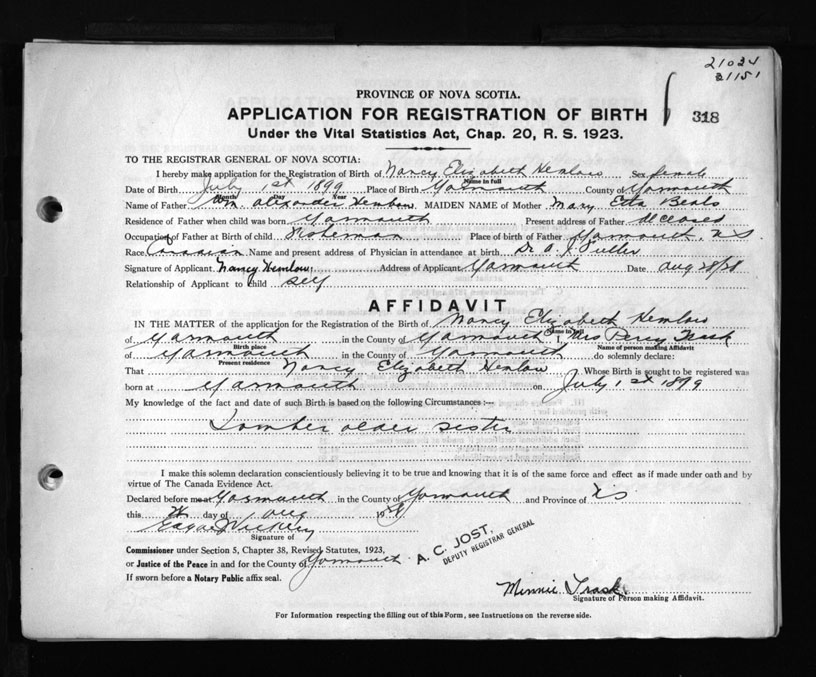 21024
21151
318
PROVINCE OF NOVA SCOTIA.
APPLICATION FOR REGISTRATION OF BIRTH
Under the Vital Statistics Act, Chap. 20, R. S. 1923.
TO THE REGISTRAR GENERAL OF NOVA SCOTIA:
I hereby make application for the Registration of Birth of Nancy Elizabeth Hemlow Sex female
Name in Full
Date of Birth July 1st 1899 Place of Birth Yarmouth County of Yarmouth
Month Day Year
Name of Father Wm. Alexander Hemlow MAIDEN NAME of Mother Mary Etta Beals
Residence of Father when child was born Yarmouth Present address of Father deceased
Occupation of Father at Birth of child Place of Birth of Father Yarmouth, N.S.
Race Canadian Name and present address of Physician in attendance at birth Dr. A. J. Fuller
Signature of Applicant Nancy Hemlow Address of Applicant Yarmouth Date Aug 28/38
Relationship of Applicant to Child self
AFFIDAVIT
IN THE MATTER of the application for the Registration of the Birth of Nancy Elizabeth Hemlow
Name in Full
of Yarmouth in the County of Yarmouth I, Mrs Percy Trask
Birth place Name of person making Affidavit
of Yarmouth in the County of Yarmouth do solemnly declare:
Present residence
That Nancy Elizabeth Hemlow Whose Birth is sought to be registered was
born at Yarmouth on July 1st 1899
My knowledge of the fact and date of such Birth is based on the following Circumstances :—
I am her older sister
I make this solemn declaration conscientiously believing it to be true and knowing that it is of the same force and effect as if made under oath and by
virtue of The Canada Evidence Act.
Declared before me at Yarmouth in the County of Yarmouth and Province of N S
this day of Aug 19
Signature of
Commissioner under Section 5, Chapter 38, Revised Statutes, 1923,
or Justice of the Peace in and for the County of Yarmouth
If sworn before a Notary Public affix seal.
A. C. JOST,
DEPUTY REGISTRAR GENERAL
Minnie Trask
Signature of Person making Affidavit.
For Information respecting the filling out of this Form, see Instructions on the reverse side.